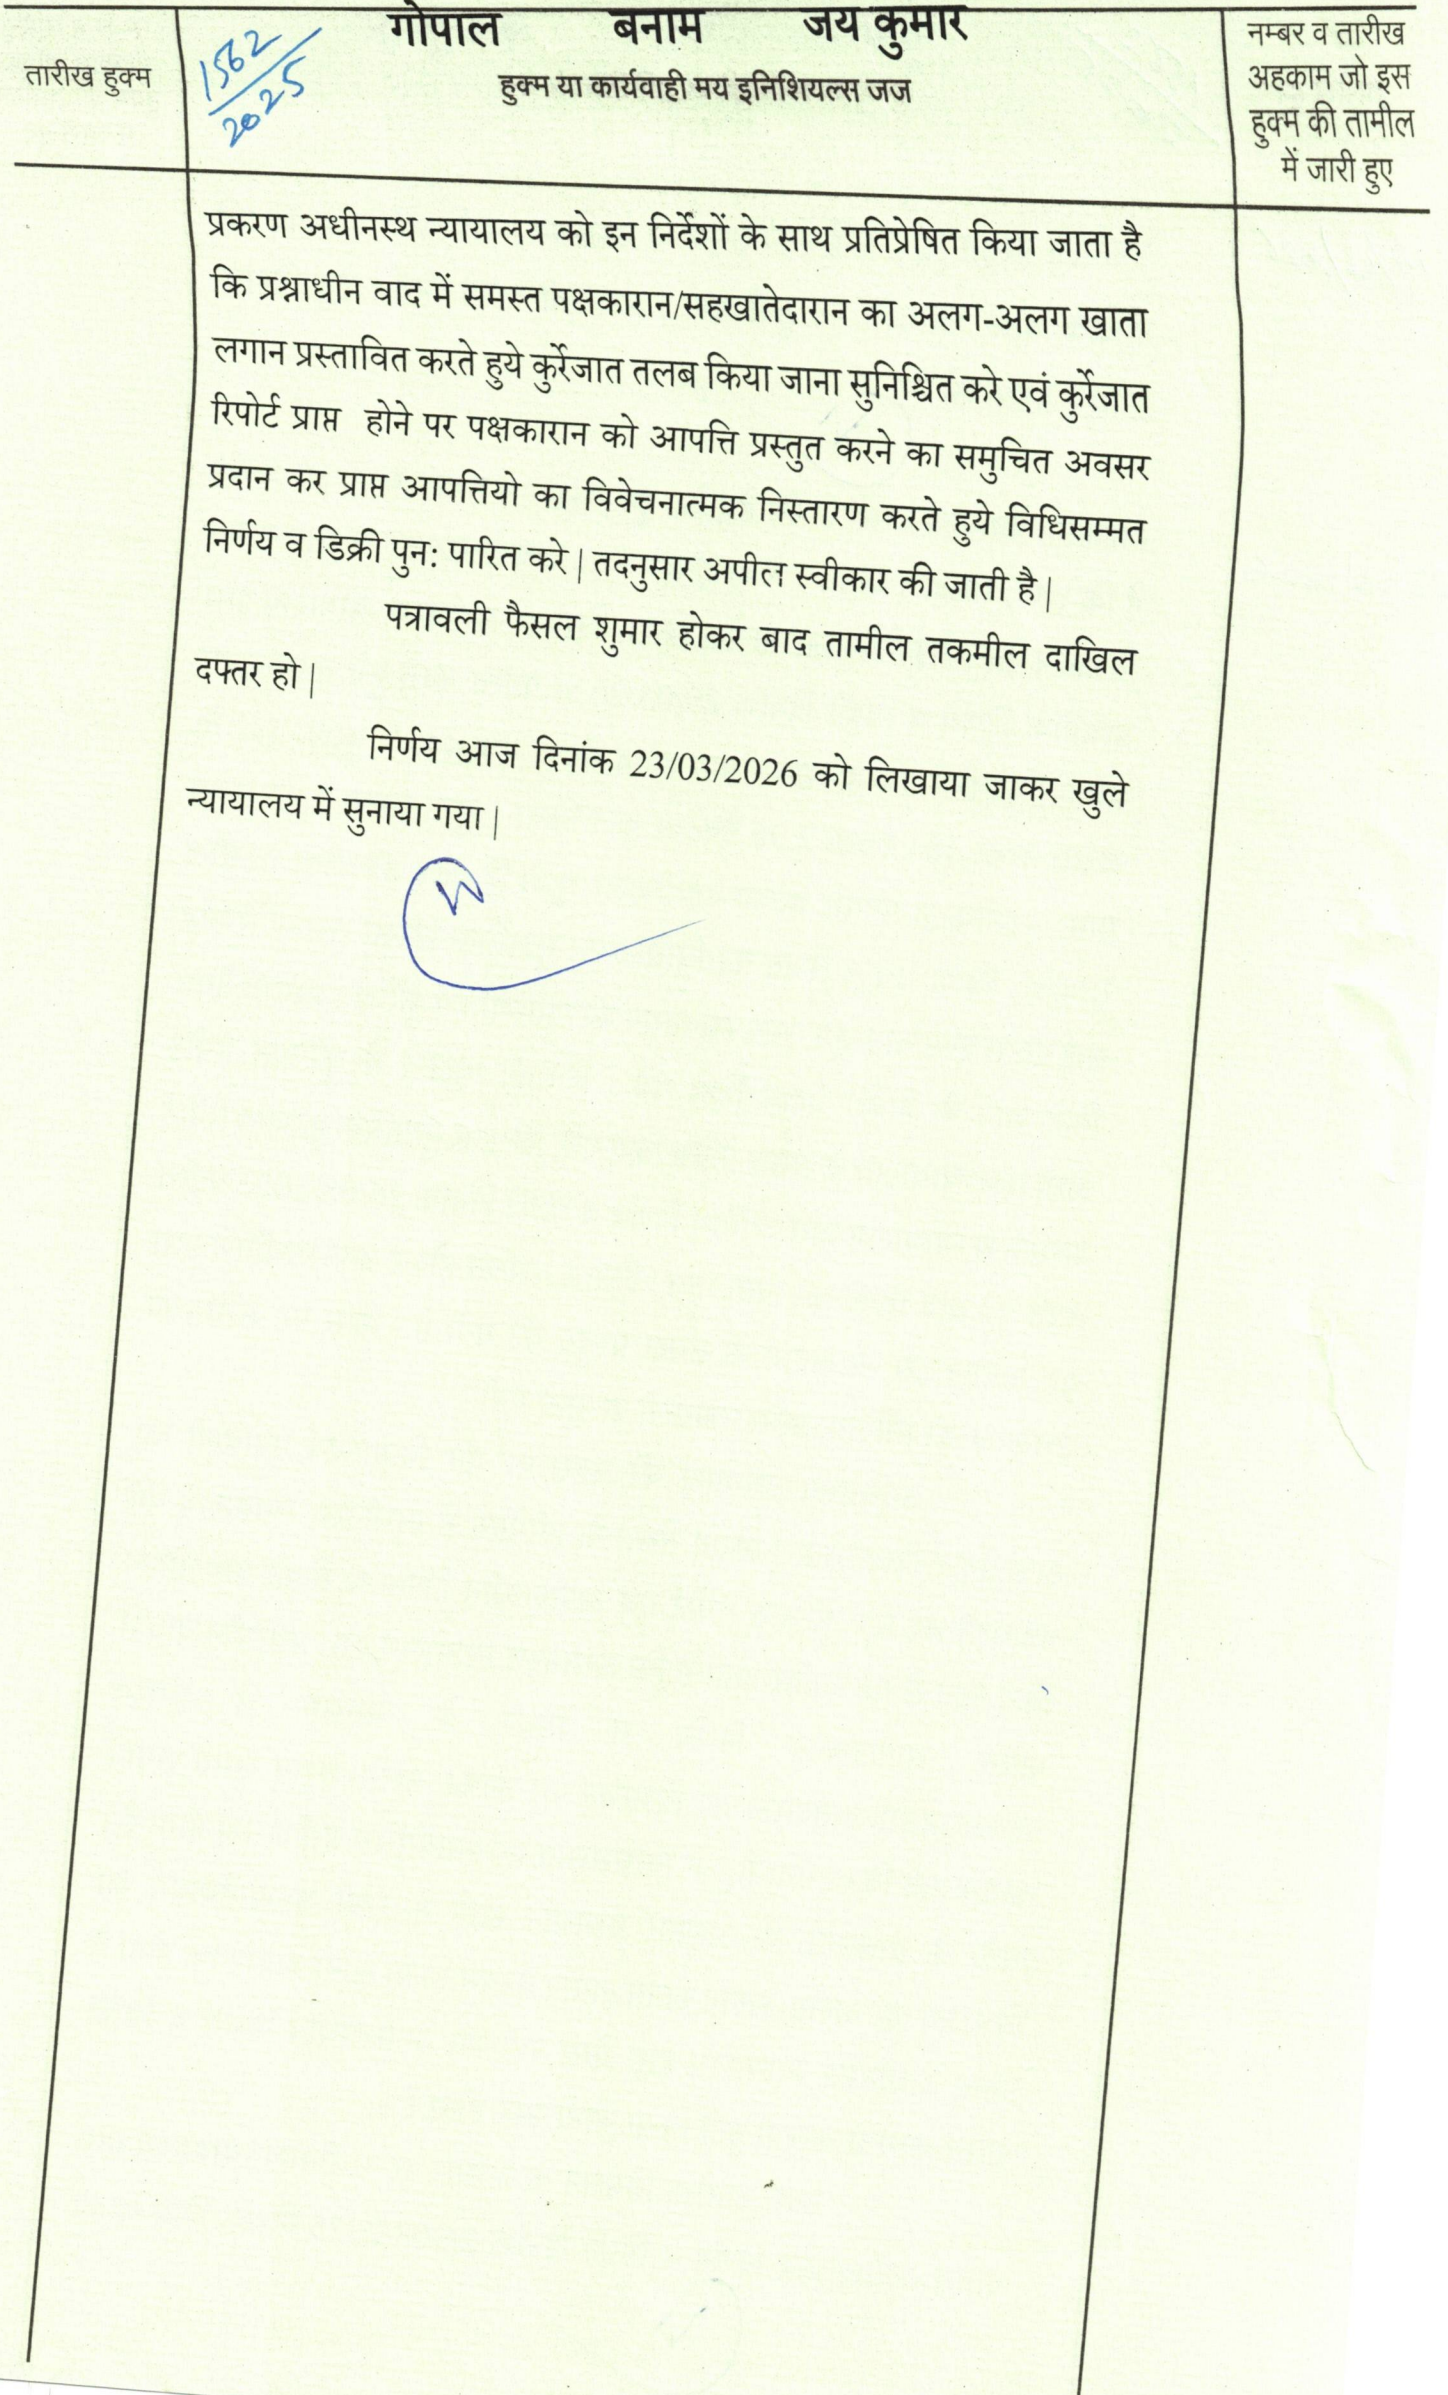 गोपाल बनाम जय कुमार
तारीख हुक्म
1562
2025
हुक्म या कार्यवाही मय इनिशियल्स जज
नम्बर व तारीख
अहकाम जो इस
हुक्म की तामील
में जारी हुए
प्रकरण अधीनस्थ न्यायालय को इन निर्देशों के साथ प्रतिप्रेषित किया जाता है
कि प्रश्नाधीन वाद में समस्त पक्षकारान/सहखातेदारान का अलग-अलग खाता
लगान प्रस्तावित करते हुये कुर्रेजात तलब किया जाना सुनिश्चित करे एवं कुर्रेजात
रिपोर्ट प्राप्त होने पर पक्षकारान को आपत्ति प्रस्तुत करने का समुचित अवसर
प्रदान कर प्राप्त आपत्तियो का विवेचनात्मक निस्तारण करते हुये विधिसम्मत
निर्णय व डिक्री पुन: पारित करे| तदनुसार अपील स्वीकार की जाती है|
पत्रावली फैसल शुमार होकर बाद तामील तकमील दाखिल
दफ्तर हो|
निर्णय आज दिनांक 23/03/2026 को लिखाया जाकर खुले
न्यायालय में सुनाया गया|